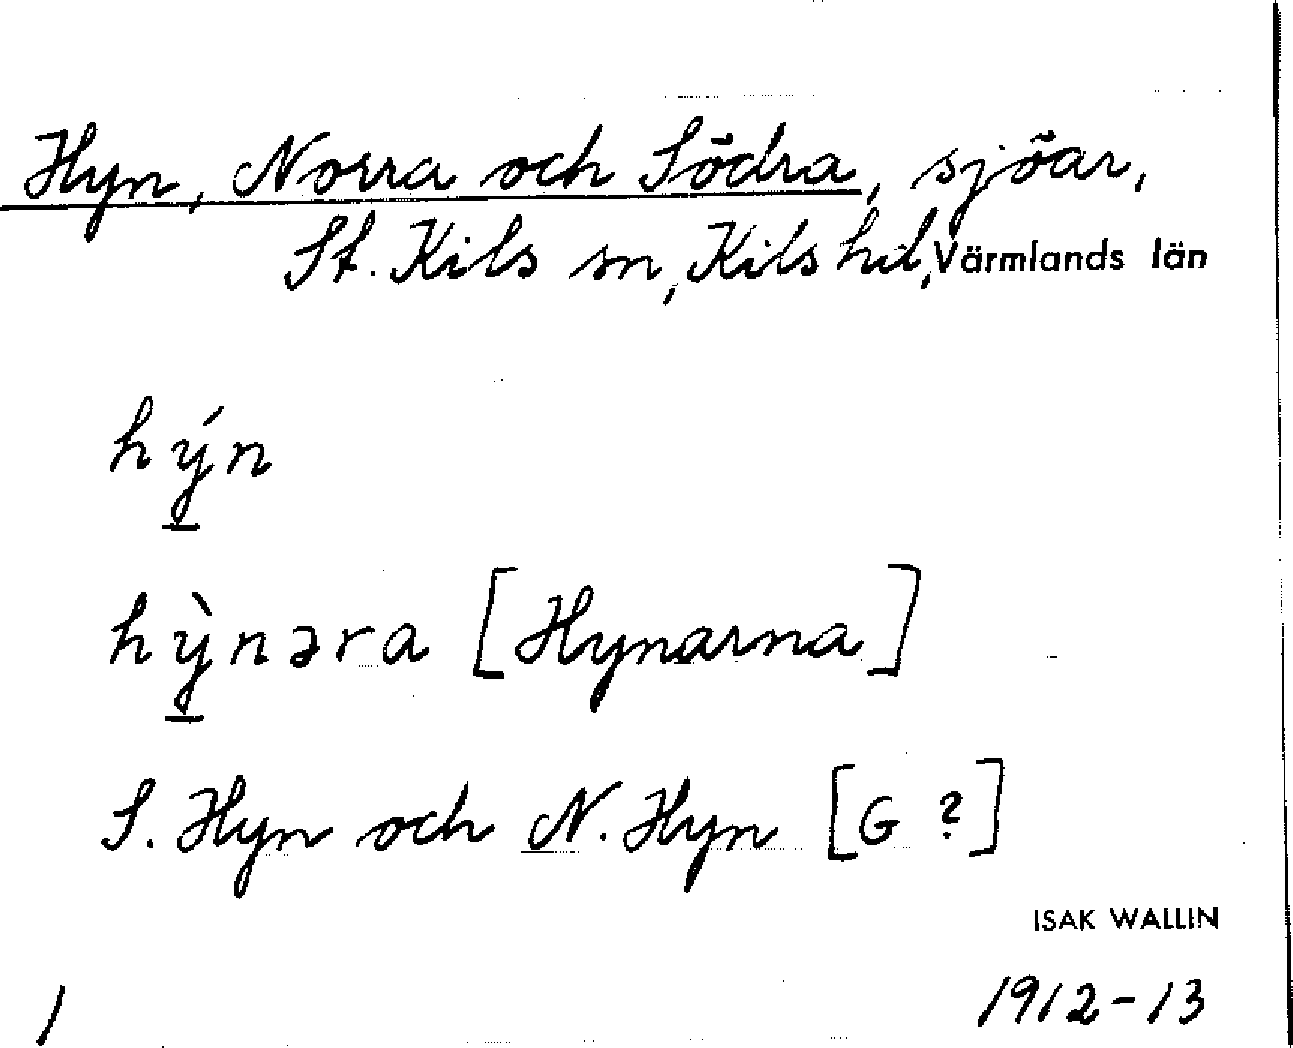 Hyn, Norra och Södra, sjöar,
St. Kils sn, Kils hd, Värmlands län
hý̱n
hỳ̱nəra [Hynarna]
S. Hyn och N. Hyn [G ?]
ISAK WALLIN
1912-13
1